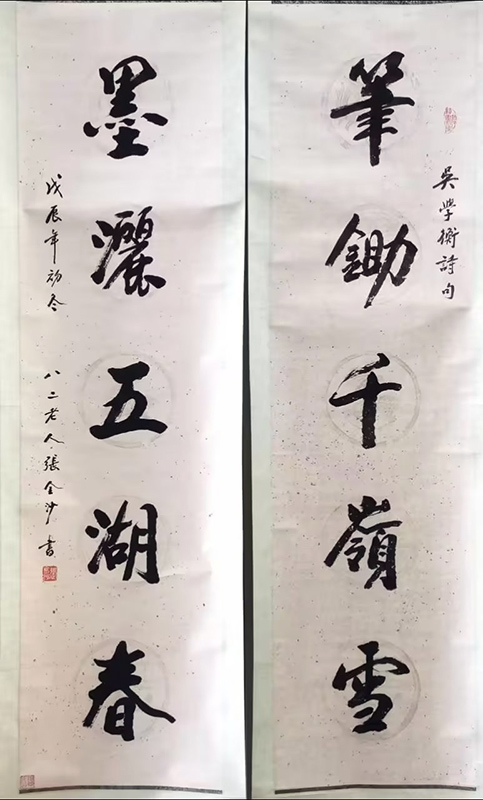 吳學衡詩句
筆鋤千嶺雪
墨灑五湖春
戊辰年初冬 八二老人張金沙書